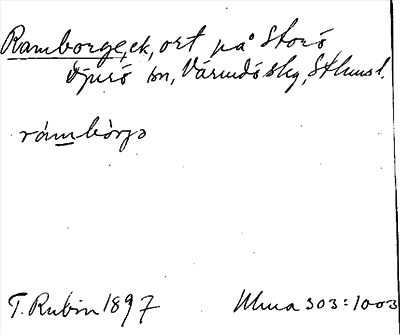 Ramborge, ek, ort på Storö,
Djurö sn, Värmdö skg, Sthms l.
rámbòrjɔ
T. Rubin 1897 Uma 303:1003